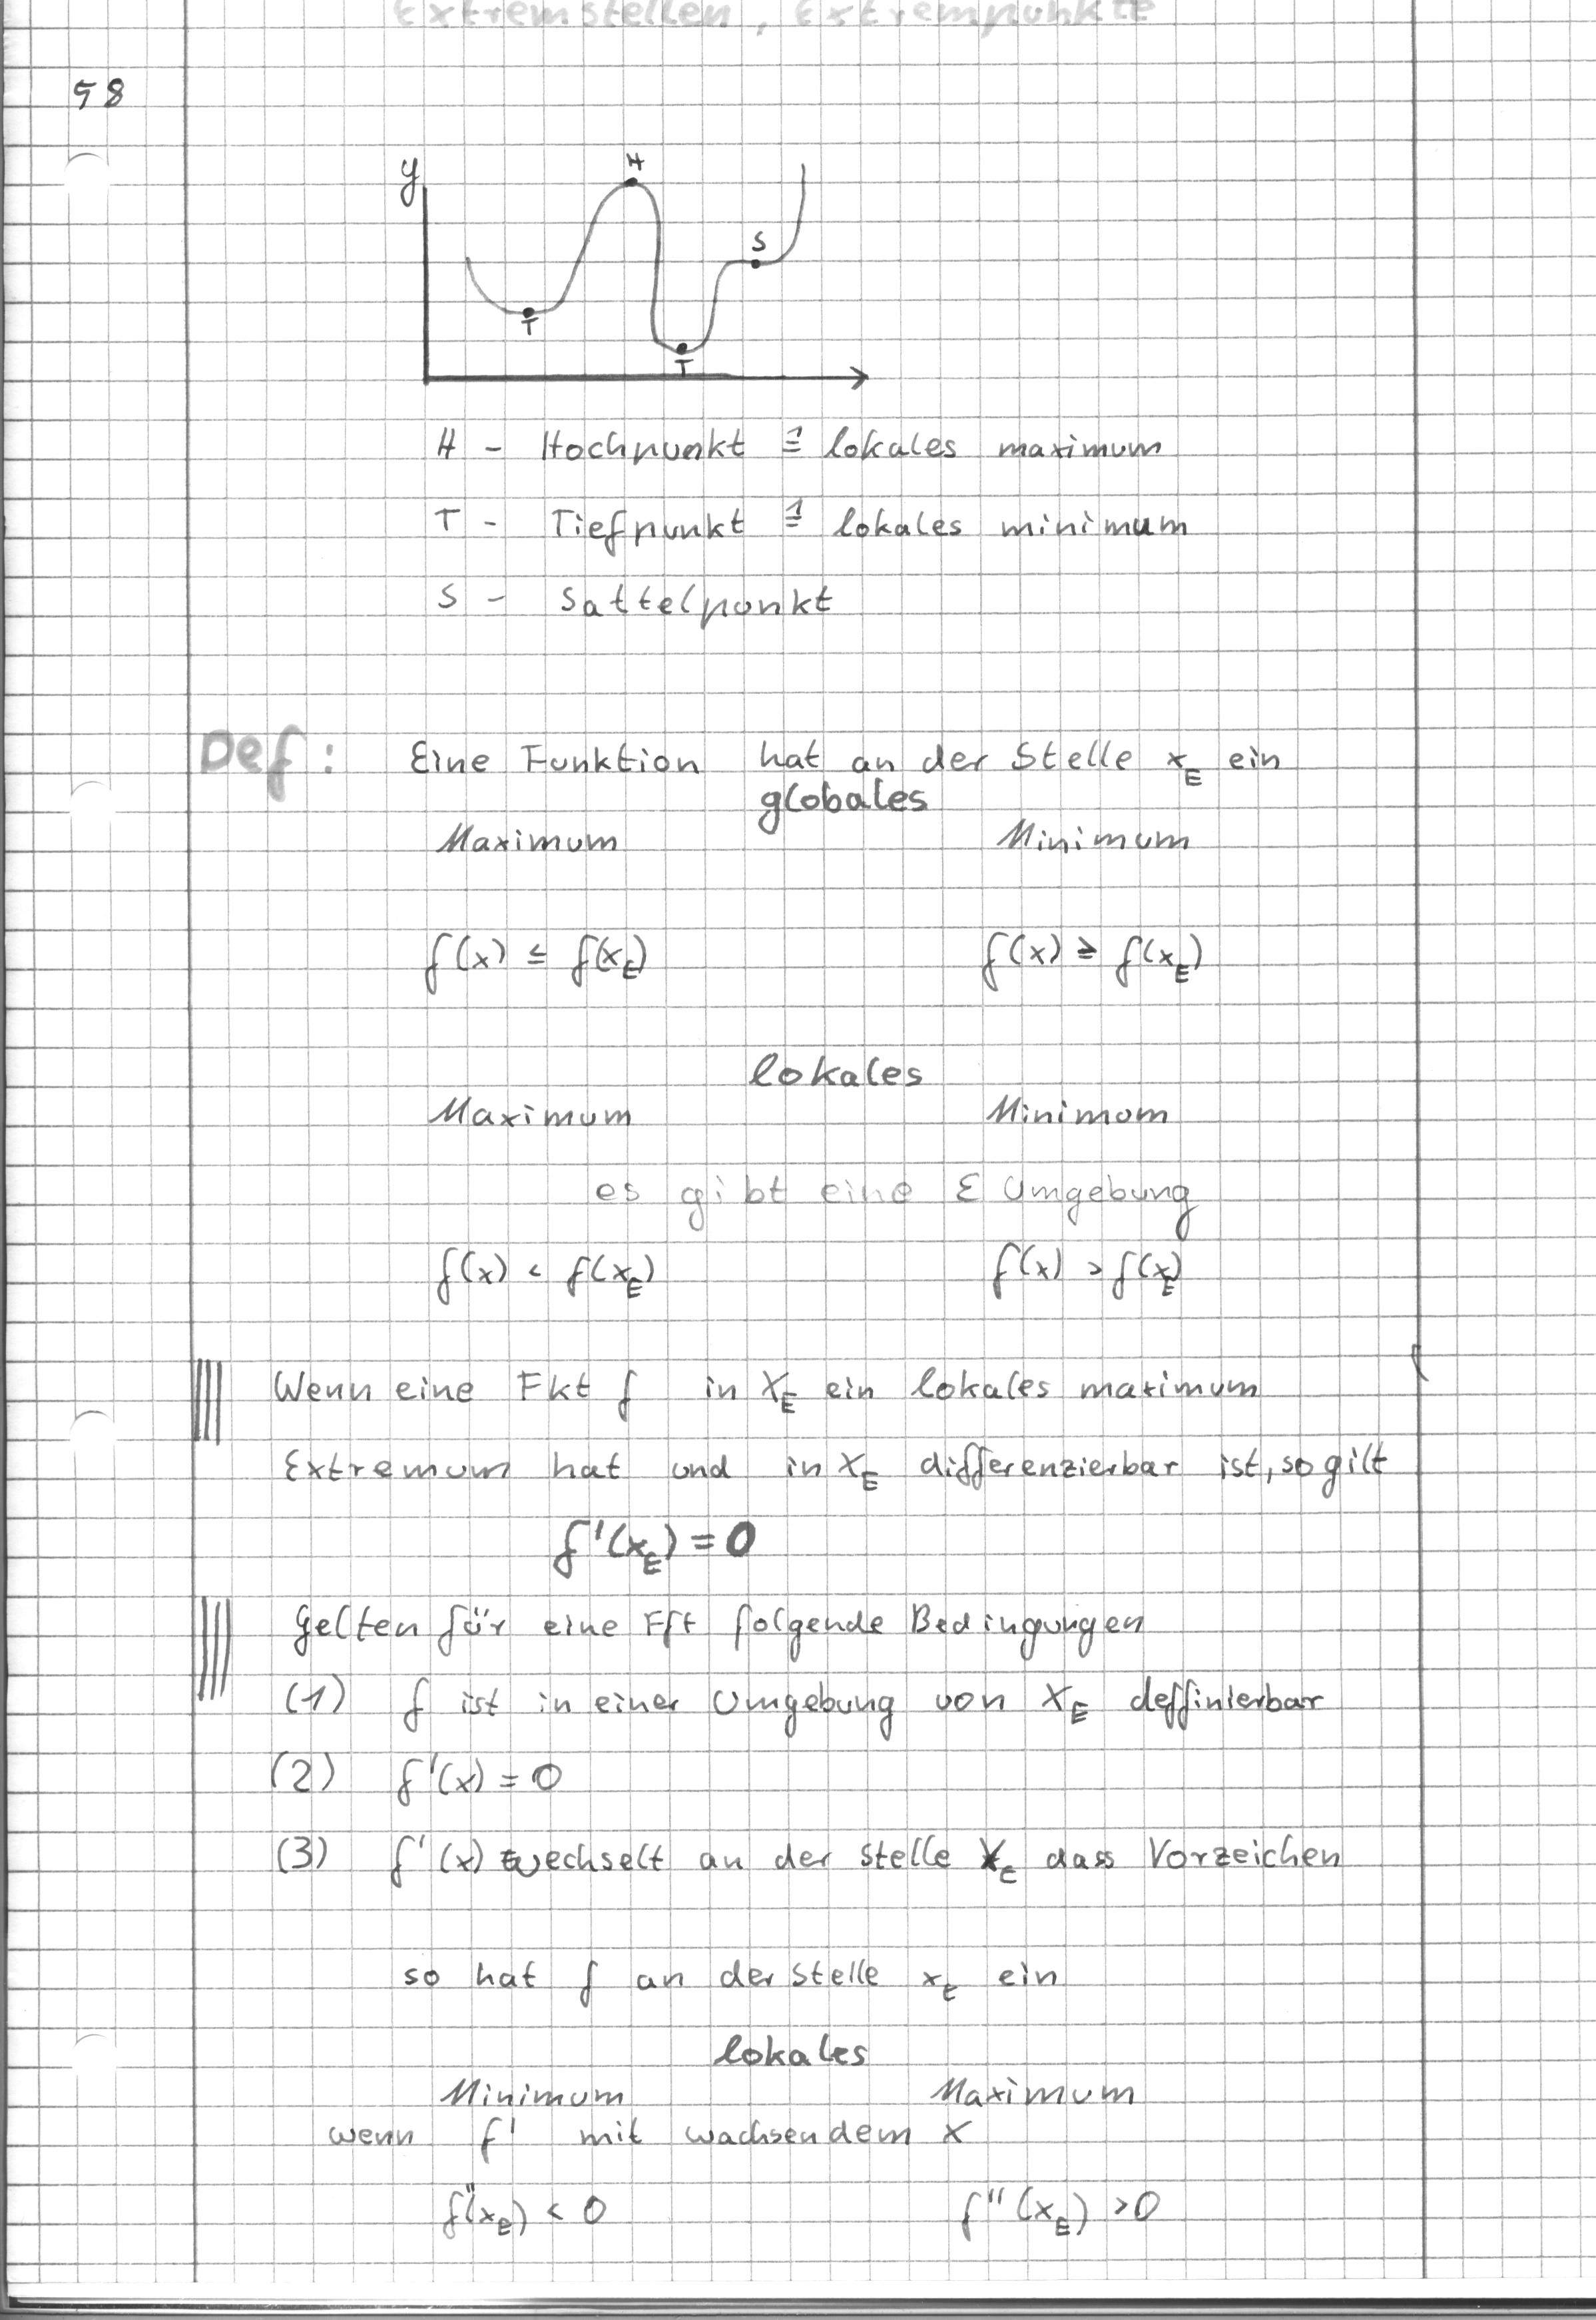 Extremstellen, Extrempunkte
58
y
H
S
T
T
H - Hochpunkt ≙ lokales maximum
T - Tiefpunkt ≙ lokales minimum
S - Sattelpunkt
Def: Eine Funktion hat an der Stelle x_E ein
globales
Maximum Minimum
f(x) ≤ f(x_E) f(x) ≥ f(x_E)
lokales
Maximum Minimum
es gibt eine ε Umgebung
f(x) < f(x_E) f(x) > f(x_E)
Wenn eine Fkt f in x_E ein lokales maximum
Extremum hat und in x_E differenzierbar ist, so gilt
f'(x_E) = 0
Gelten für eine Fft folgende Bedingungen
(1) f ist in einer Umgebung von x_E deffinierbar
(2) f'(x) = 0
(3) f'(x) wechselt an der Stelle x_E dass Vorzeichen
so hat f an der Stelle x_E ein
lokales
Minimum Maximum
wenn f' mit wachsendem x
f"(x_E) < 0 f"(x_E) > 0